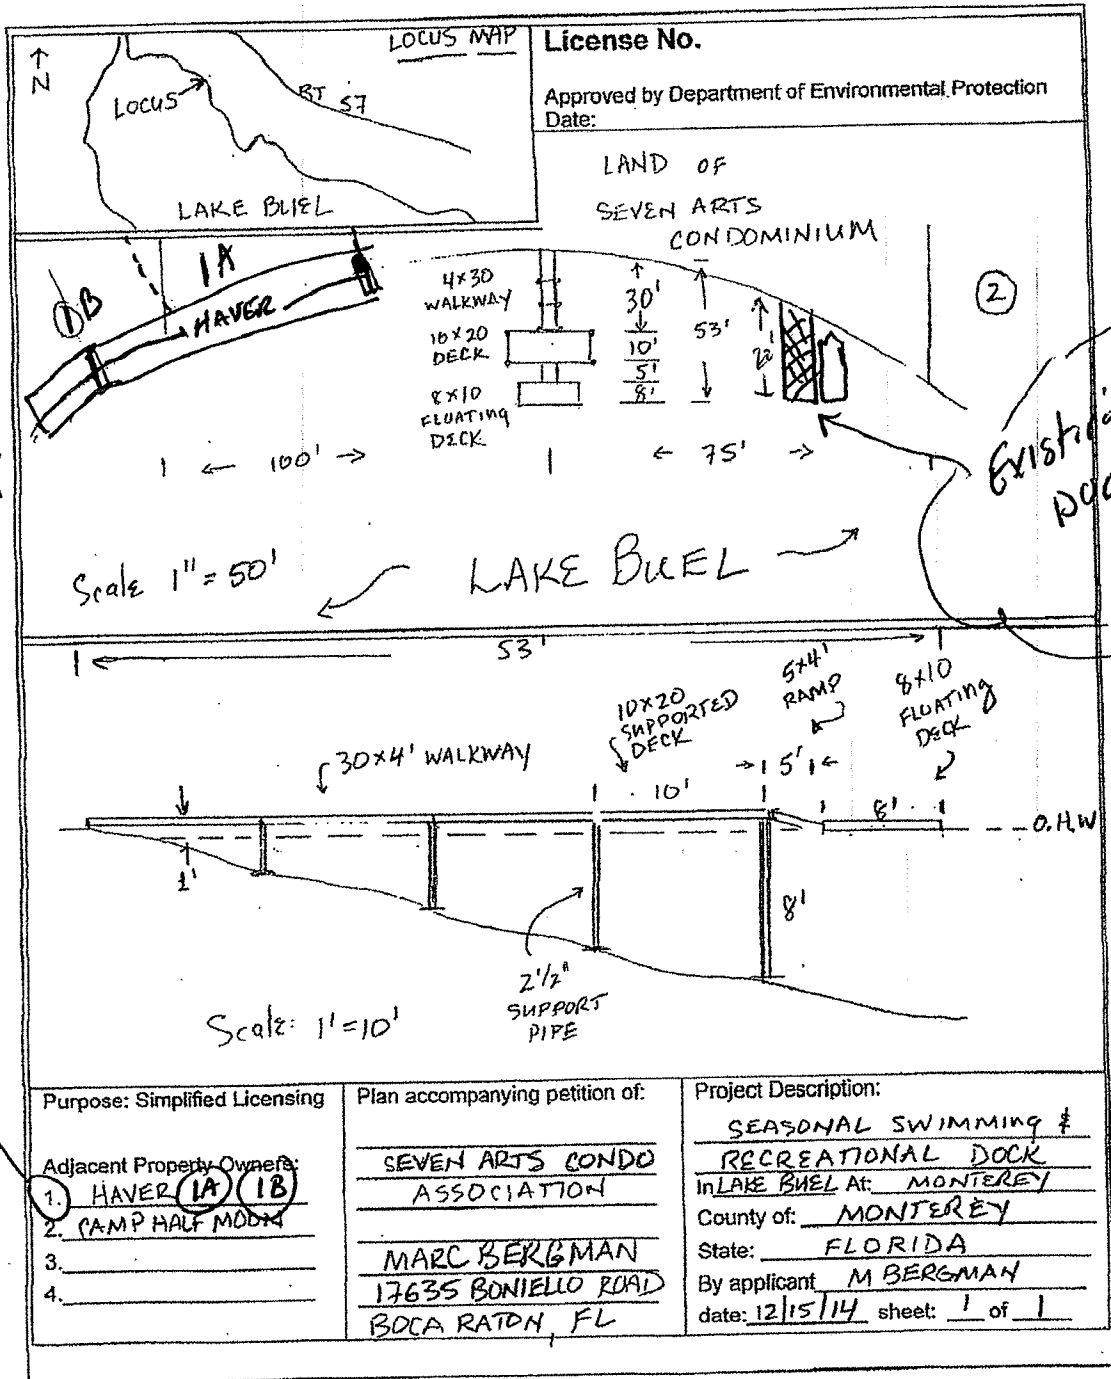 LOCUS MAP
N
LOCUS
RT 57
LAKE BUEL
License No.
Approved by Department of Environmental Protection
Date:
LAND OF
SEVEN ARTS
CONDOMINIUM
1A
1B
HAVER
4x30
WALKWAY
10x20
DECK
8x10
FLOATING
DECK
30'
10'
5'
8'
53'
22'
2
100'
75'
Scale 1"=50'
LAKE BUEL
53'
30x4' WALKWAY
10x20
SUPPORTED
DECK
5x4'
RAMP
8x10
FLOATING
DECK
10'
5'
8'
O.H.W
1'
8'
2 1/2"
SUPPORT
PIPE
Scale: 1'=10'
Purpose: Simplified Licensing
Adjacent Property Owners:
1. HAVER 1A 1B
2. CAMP HALF MOON
3.
4.
Plan accompanying petition of:
SEVEN ARTS CONDO
ASSOCIATION
MARC BERGMAN
17635 BONIELLO ROAD
BOCA RATON, FL
Project Description:
SEASONAL SWIMMING &
RECREATIONAL DOCK
In LAKE BUEL At: MONTEREY
County of: MONTEREY
State: FLORIDA
By applicant M BERGMAN
date: 12/15/14 sheet: 1 of 1